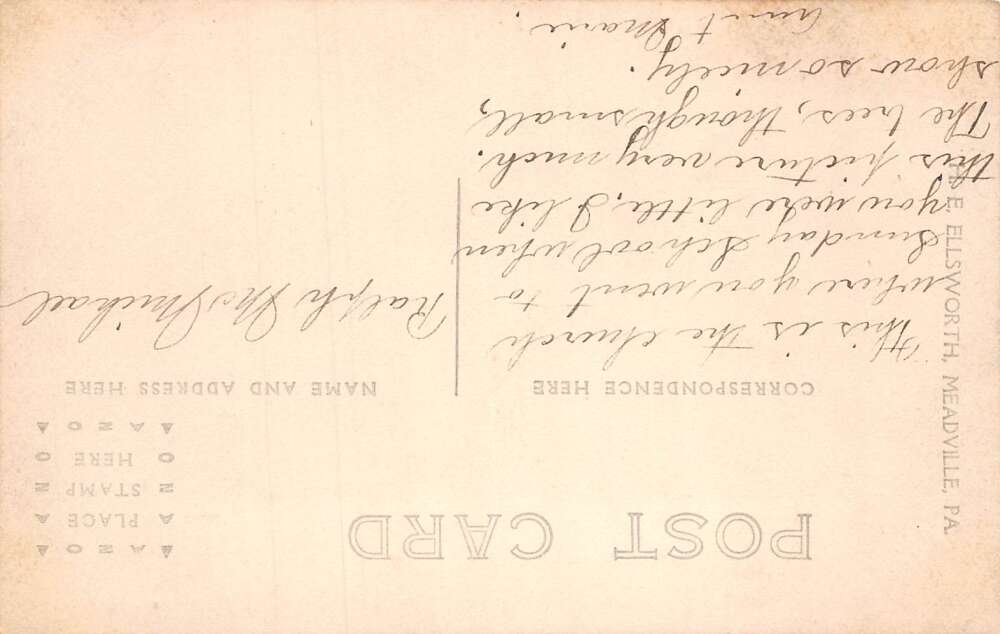 POST CARD
A Z O
PLACE
STAMP
HERE
A Z O
CORRESPONDENCE HERE
NAME AND ADDRESS HERE
This is the church
where you went to
Sunday School when
you were little. I like
this picture very much.
The trees, though small,
show so nicely.
Aunt Marie.
Ralph McMichael
H. E. ELLSWORTH, MEADVILLE, PA.